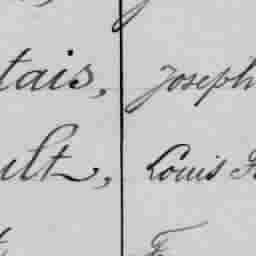 tais, Joseph
ult, Louis